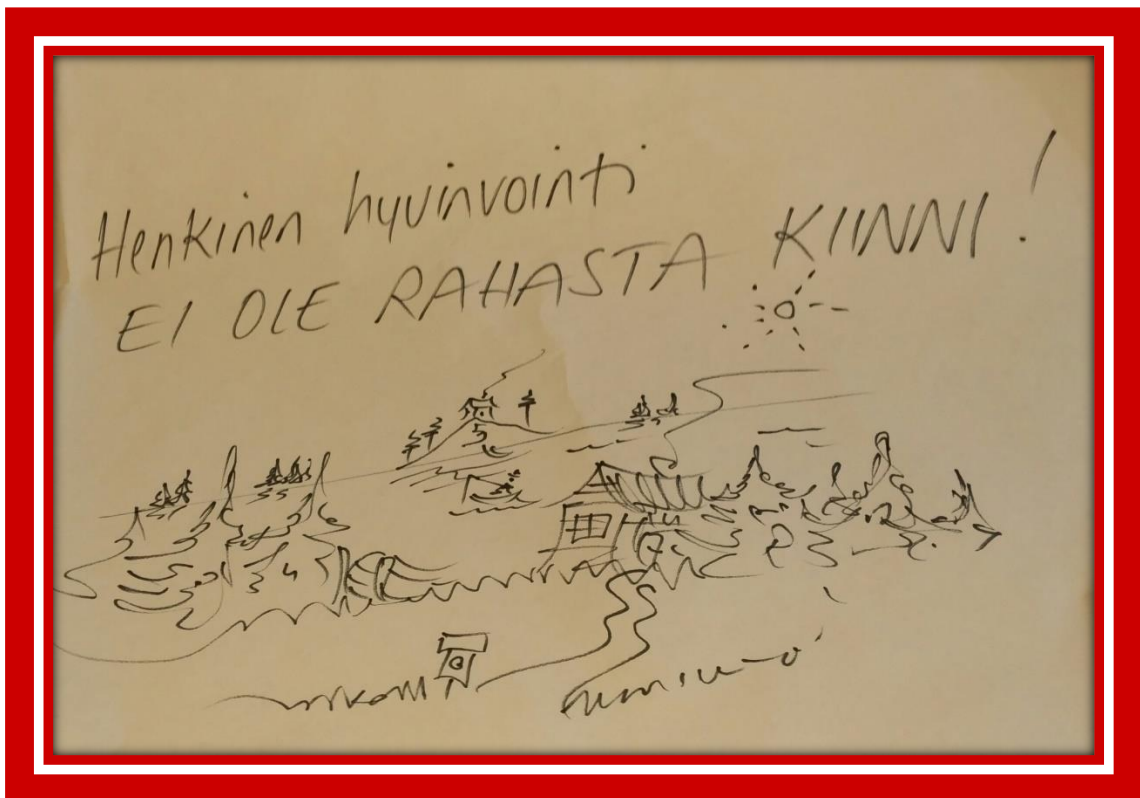 Henkinen hyvinvointi
EI OLE RAHASTA KIINNI!